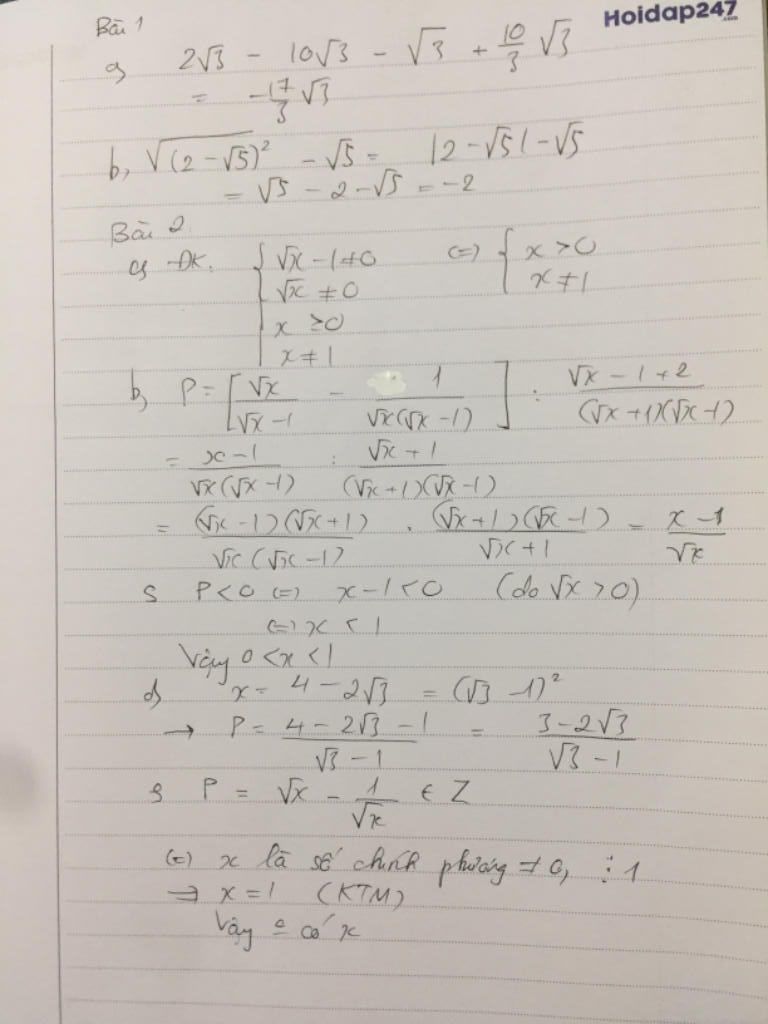 Hoidap247.com
Bài 1
a, 2√3 - 10√3 - √3 + 10/3 √3
= -17/3 √3
b, √(2-√5)² - √5 = |2-√5|-√5
= √5 - 2 - √5 = -2
Bài 2
a, ĐK. { √x - 1 ≠ 0 (=) { x > 0
√x ≠ 0 x ≠ 1
x ≥ 0
x ≠ 1
b, P = [ √x/(√x - 1) - 1/(√x(√x - 1)) ] : (√x - 1 + 2)/((√x + 1)(√x - 1))
= (x - 1)/(√x(√x - 1)) : (√x + 1)/((√x + 1)(√x - 1))
= ((√x - 1)(√x + 1))/(√x(√x - 1)) . ((√x + 1)(√x - 1))/(√x + 1) = (x - 1)/√x
c, P < 0 (=) x - 1 < 0 (do √x > 0)
(=) x < 1
Vậy 0 < x < 1
d, x = 4 - 2√3 = (√3 - 1)²
→ P = (4 - 2√3 - 1)/(√3 - 1) = (3 - 2√3)/(√3 - 1)
P = √x - 1/√x ∈ Z
(=) x là số chính phương ≠ 0, ⋮ 1
⇒ x = 1 (KTM)
Vậy có x